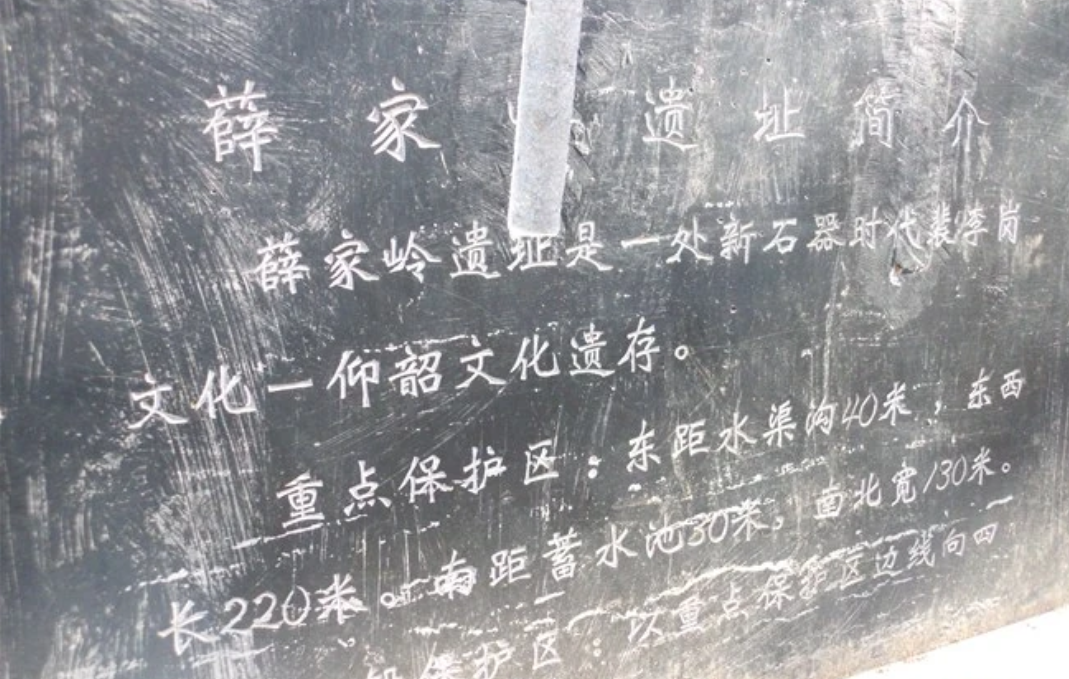 薛家遗址简介
薛家岭遗址是一处新石器时代裴李岗
文化一仰韶文化遗存。
重点保护区：东距水渠沟40米，东西
长220米。南距蓄水池30米，南北宽130米。
保护区：以重点保护区边线向四